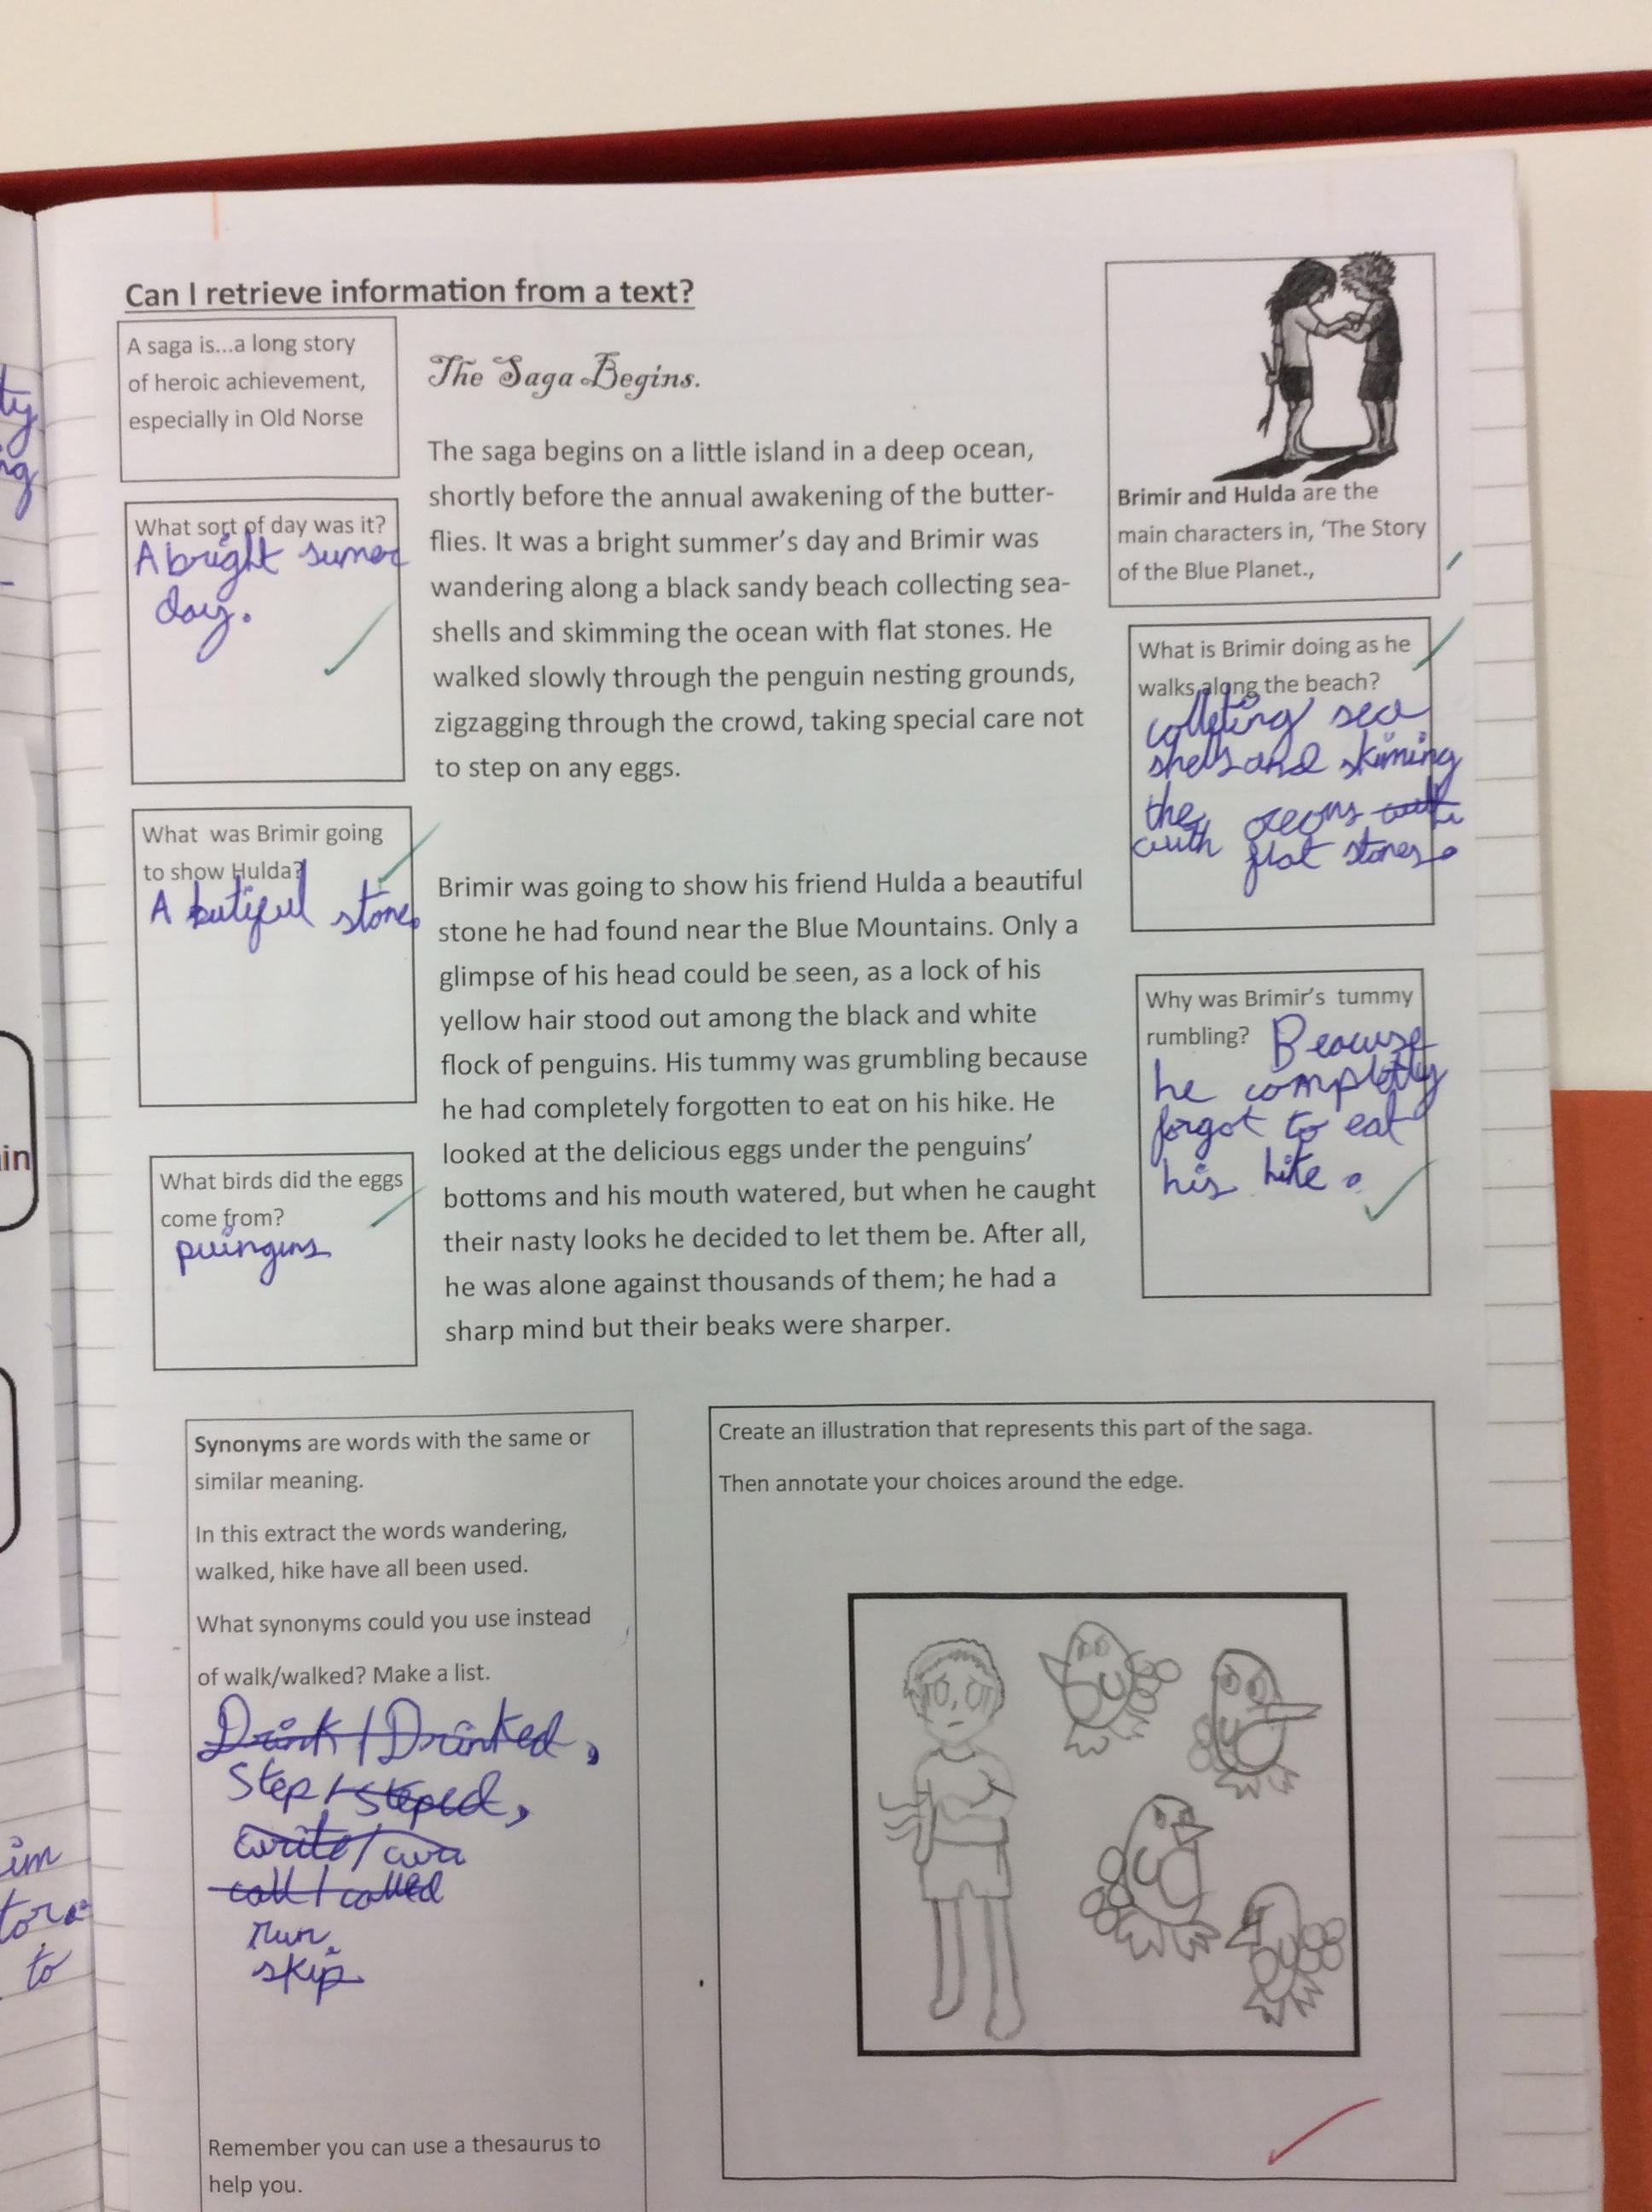 Can I retrieve information from a text?
A saga is...a long story
of heroic achievement,
especially in Old Norse
What sort of day was it?
A bright sumer
day.
What was Brimir going
to show Hulda?
A butiful stone.
What birds did the eggs
come from?
puinguns
The Saga Begins.
The saga begins on a little island in a deep ocean,
shortly before the annual awakening of the butter-
flies. It was a bright summer's day and Brimir was
wandering along a black sandy beach collecting sea-
shells and skimming the ocean with flat stones. He
walked slowly through the penguin nesting grounds,
zigzagging through the crowd, taking special care not
to step on any eggs.
Brimir was going to show his friend Hulda a beautiful
stone he had found near the Blue Mountains. Only a
glimpse of his head could be seen, as a lock of his
yellow hair stood out among the black and white
flock of penguins. His tummy was grumbling because
he had completely forgotten to eat on his hike. He
looked at the delicious eggs under the penguins'
bottoms and his mouth watered, but when he caught
their nasty looks he decided to let them be. After all,
he was alone against thousands of them; he had a
sharp mind but their beaks were sharper.
Brimir and Hulda are the
main characters in, 'The Story
of the Blue Planet.,
What is Brimir doing as he
walks along the beach?
colleting sea
shells and skiming
the oceons with
with flat stones.
Why was Brimir's tummy
rumbling? Beacuse
he completly
forgot to eat
his hike.
Synonyms are words with the same or
similar meaning.
In this extract the words wandering,
walked, hike have all been used.
What synonyms could you use instead
of walk/walked? Make a list.
Drink/Drinked,
Step/steped,
write/
call/called
run
skip
Remember you can use a thesaurus to
help you.
Create an illustration that represents this part of the saga.
Then annotate your choices around the edge.
in
im
to